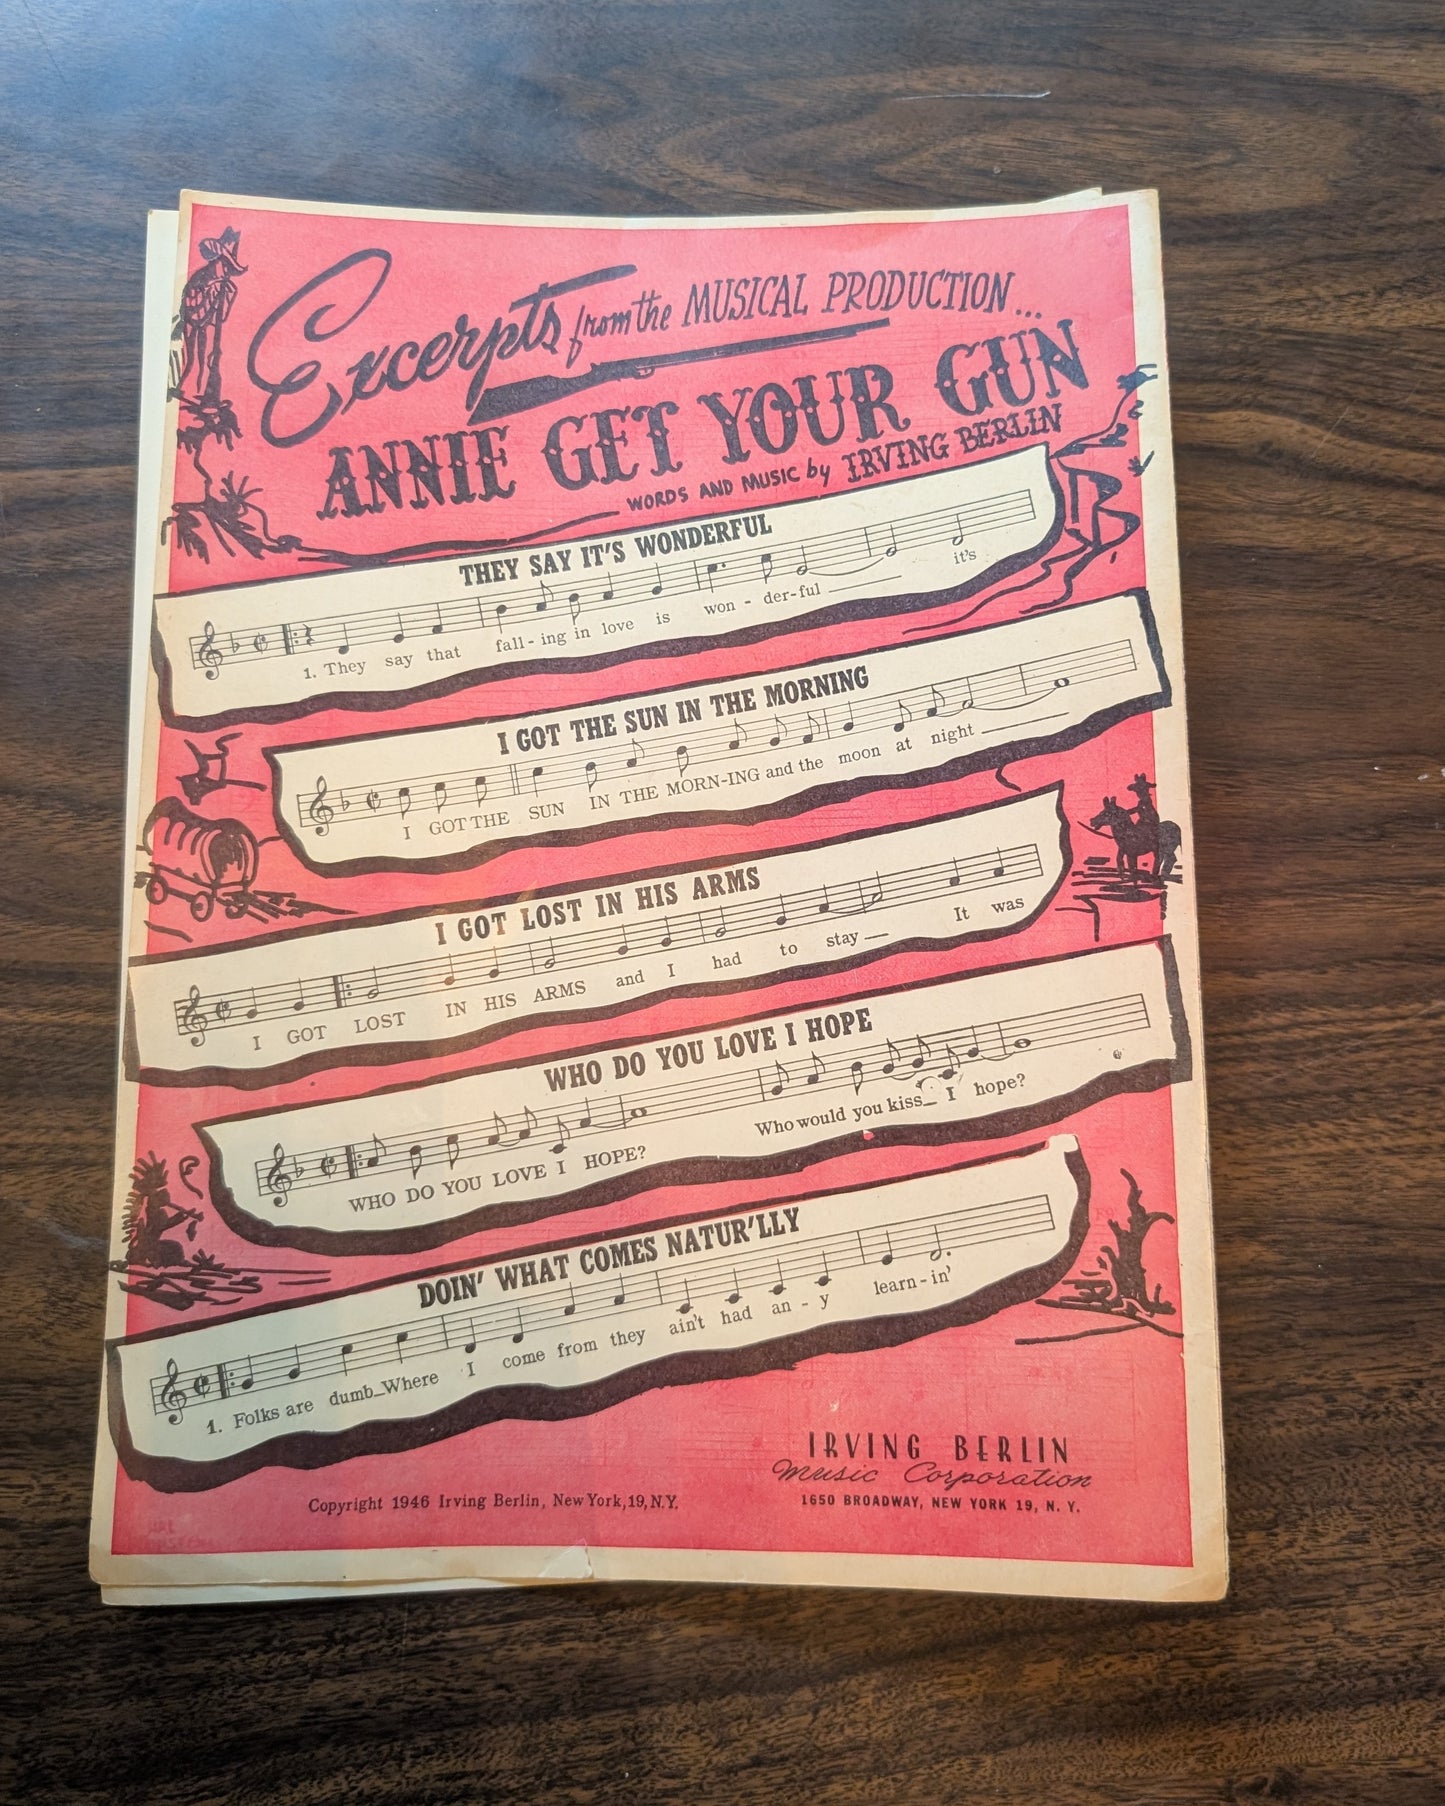 Excerpts from the MUSICAL PRODUCTION...
ANNIE GET YOUR GUN
WORDS AND MUSIC by IRVING BERLIN
THEY SAY IT'S WONDERFUL
1. They say that fall-ing in love is won - der-ful it's
I GOT THE SUN IN THE MORNING
I GOT THE SUN IN THE MORN-ING and the moon at night
I GOT LOST IN HIS ARMS
I GOT LOST IN HIS ARMS and I had to stay It was
WHO DO YOU LOVE I HOPE
WHO DO YOU LOVE I HOPE? Who would you kiss I hope?
DOIN' WHAT COMES NATUR'LLY
1. Folks are dumb Where I come from they ain't had an - y learn-in'
IRVING BERLIN
Music Corporation
1650 BROADWAY, NEW YORK 19, N. Y.
Copyright 1946 Irving Berlin, New York, 19, N.Y.